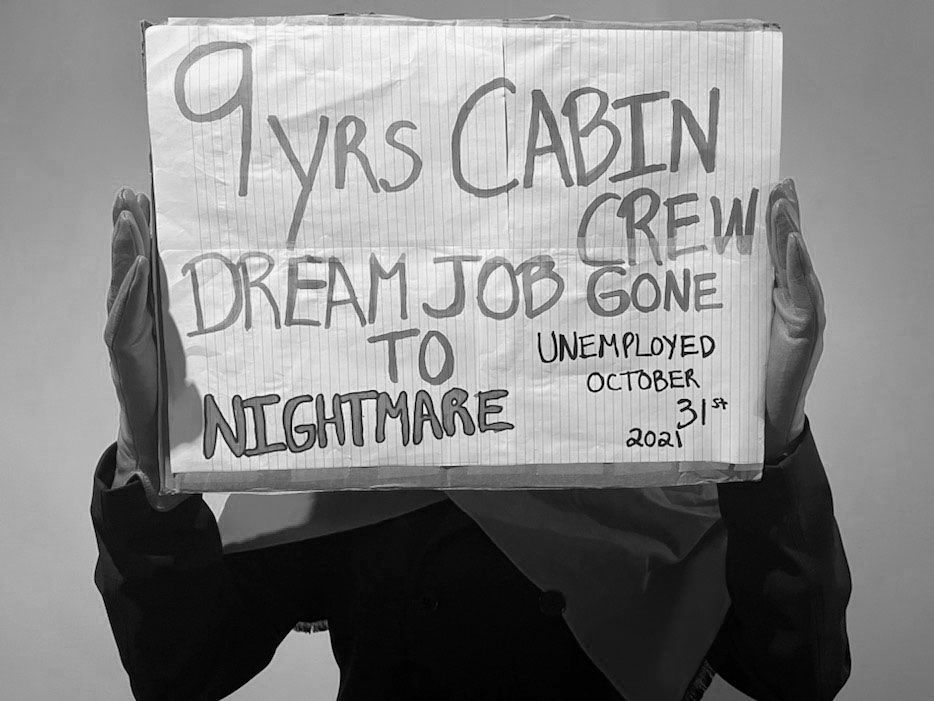 9 yrs CABIN
CREW
DREAM JOB GONE
TO
NIGHTMARE
UNEMPLOYED
OCTOBER
31st
2021